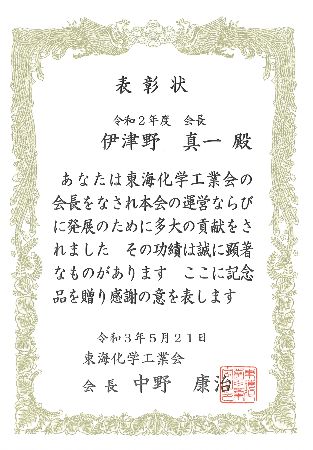 表彰状
令和2年度 会長
伊津野 真一 殿
あなたは東海化学工業会の
会長をなされ本会の運営ならび
に発展のために多大の貢献をさ
れました その功績は誠に顕著
なものがあります ここに記念
品を贈り感謝の意を表します
令和3年5月21日
東海化学工業会
会長 中野 康治